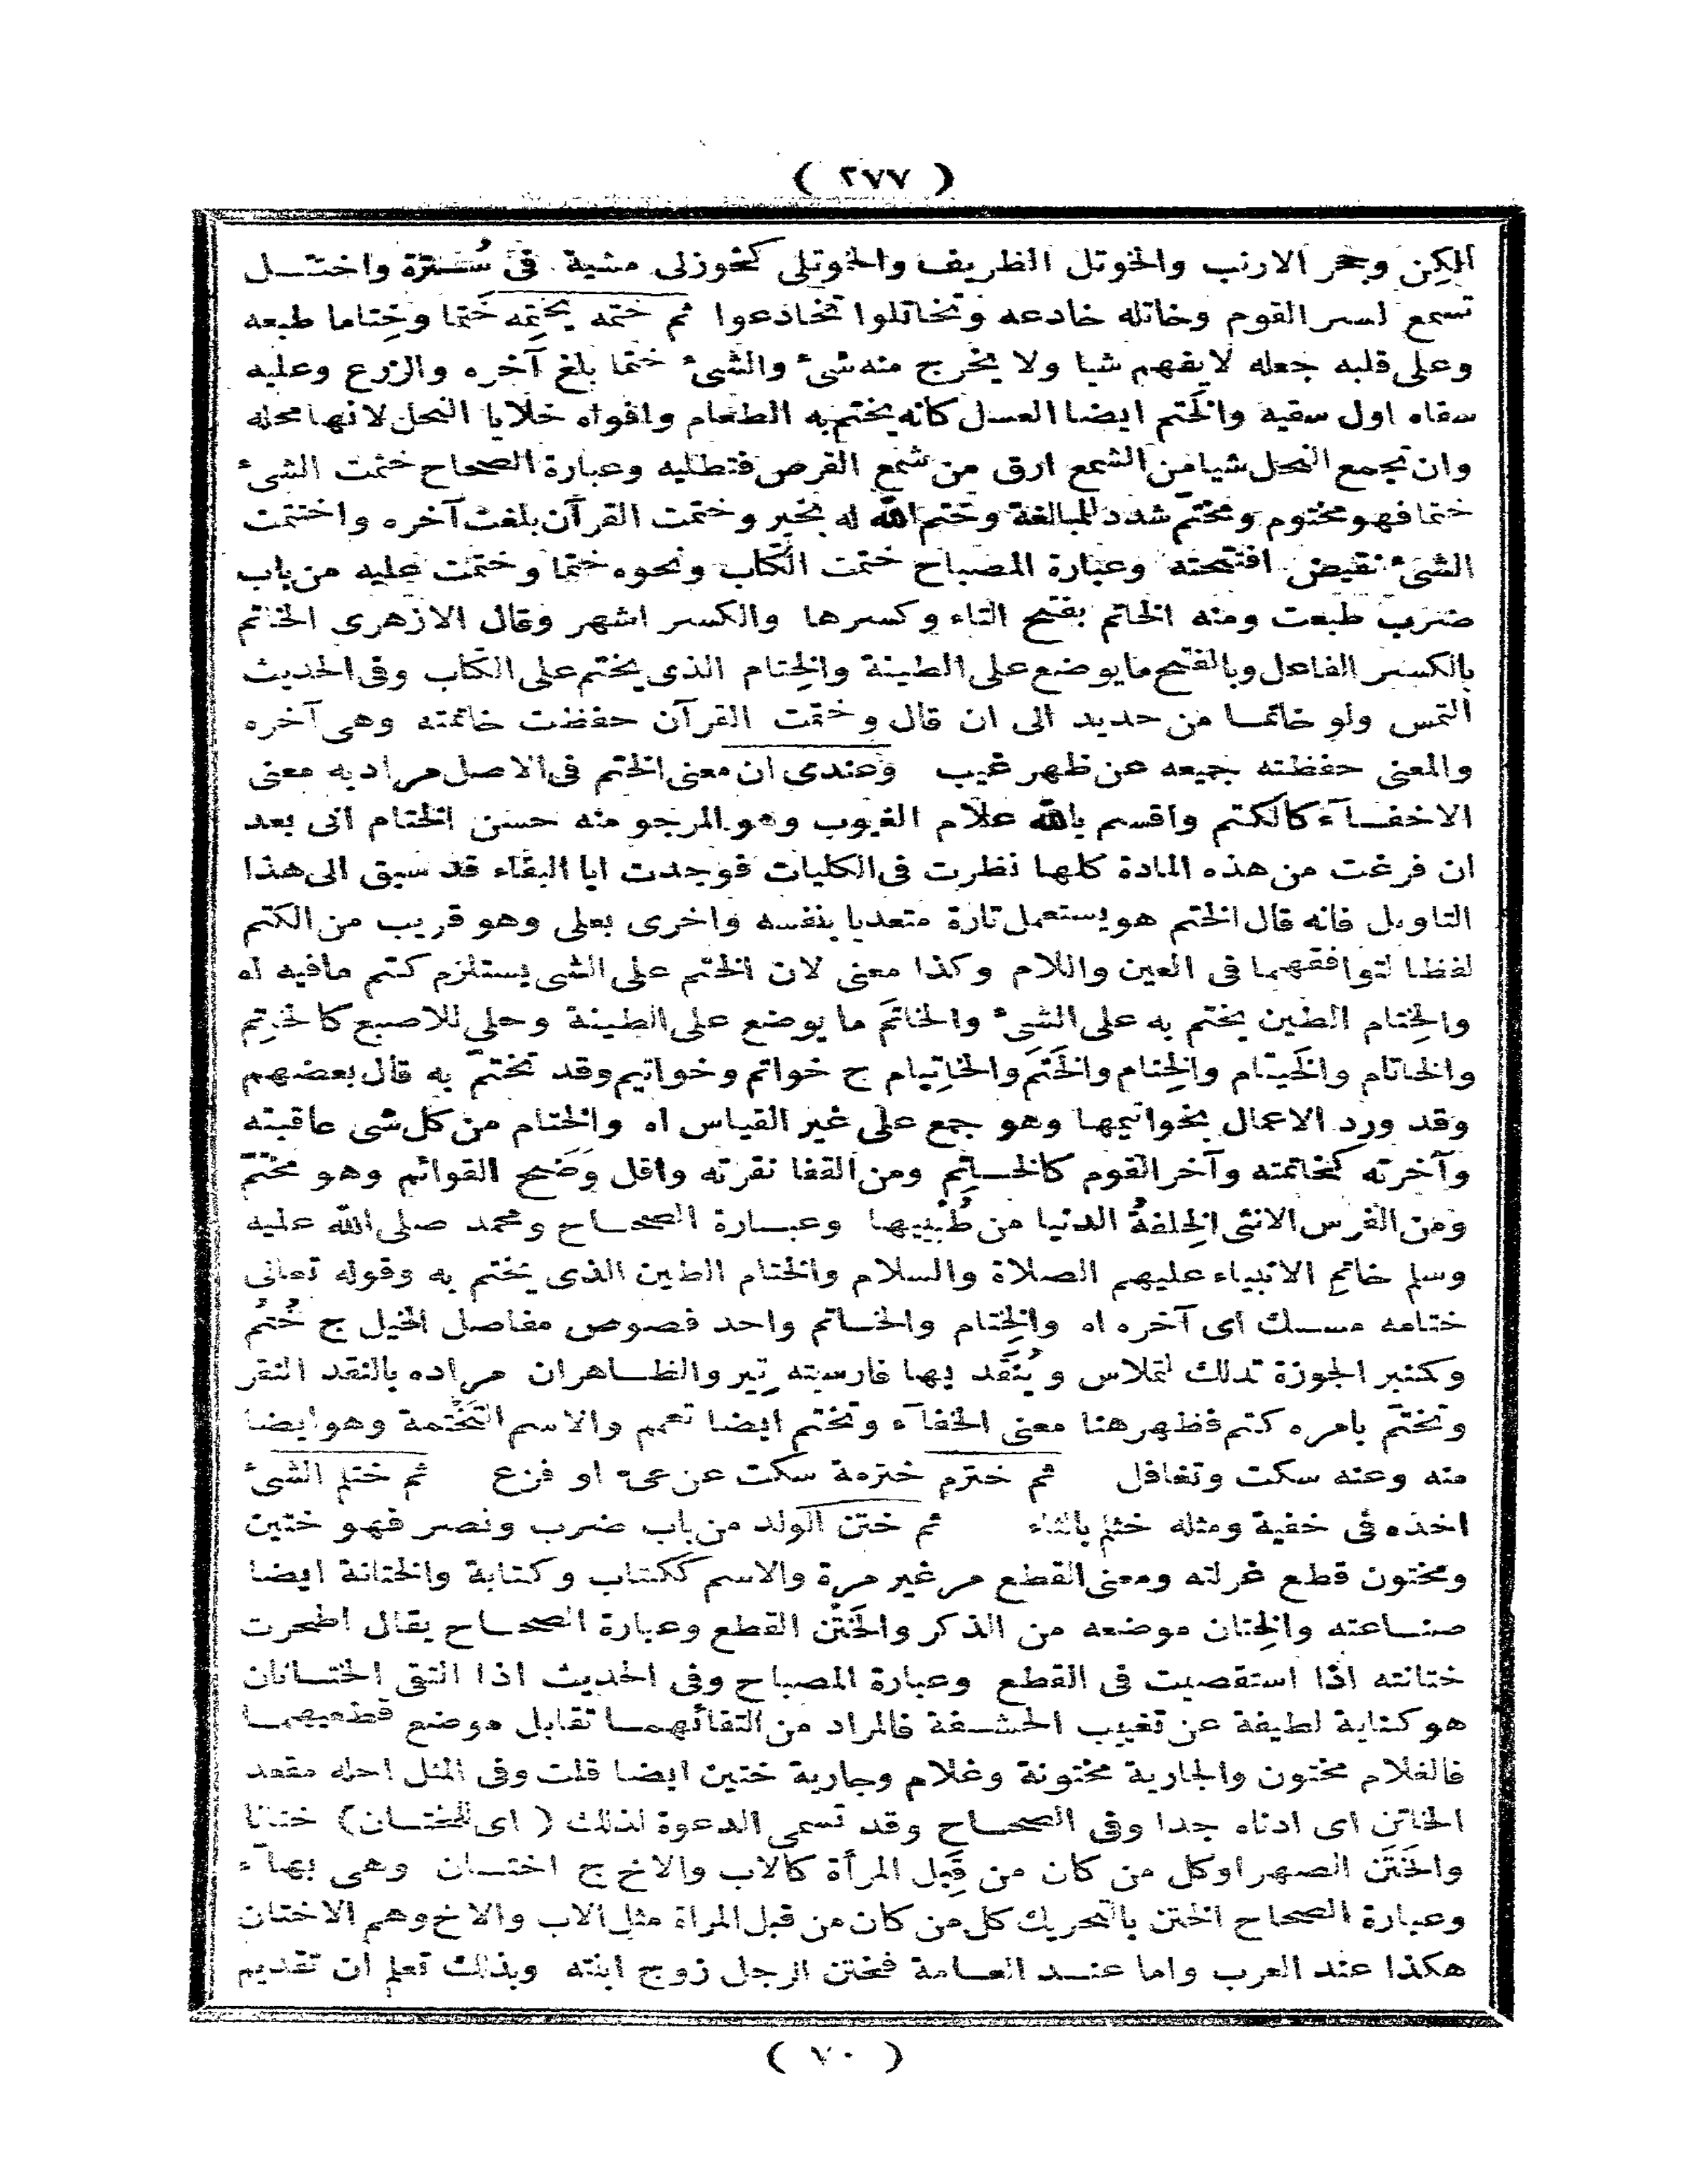 ( ٢٧٧ )
الكِن وجحر الارنب والخوتل الظريف والخوتلى كخوزلى مشية فى سُــترة واختـــل
تسمع لسر القوم وخاتله خادعه وتخاتلوا تخادعوا ثم ختمه يختِمه خَتما وخِتاما طبعه
وعلى قلبه جعله لا يفهم شيا ولا يخرج منه شىء والشىء ختما بلغ آخره والزرع وعليه
سقاه اول سقية والخَتم ايضا العسل كانه يختم به الطعام وافواه خلايا النحل لانها محله
وان تجمع النحل شيا من الشمع ارق من شمع القرص فتطليه وعبارة الصحاح ختمت الشىء
ختما فهو مختوم ومختّم شدد للمبالغة وختم الله له بخير وختمت القرآن بلغت آخره واختتمت
الشىء نقيض افتتحته وعبارة المصباح ختمت الكتاب ونحوه ختما وختمت عليه من باب
ضرب طبعت ومنه الخاتم بفتح التاء وكسرها والكسر اشهر وقال الازهرى الخاتم
بالكسر الفاعل وبالفتح ما يوضع على الطينة والخِتام الذى يختم على الكتاب وفى الحديث
التمس ولو خاتمــا من حديد الى ان قال وختمت القرآن حفظت خاتمته وهى آخره
والمعنى حفظته جميعه عن ظهر غيب وعندى ان معنى الختم فى الاصل مراد به معنى
الاخفــآء كالكتم واقسم بالله علام الغيوب وهو المرجو منه حسن الختام انى بعد
ان فرغت من هذه المادة كلها نظرت فى الكليات فوجدت ابا البقاء قد سبق الى هذا
التاويل فانه قال الختم هو يستعمل تارة متعديا بنفسه واخرى بعلى وهو قريب من الكتم
لفظا لتوافقهما فى العين واللام وكذا معنى لان الختم على الشى يستلزم كتم ما فيه اه
والخِتام الطين يختم به على الشىء والخاتَم ما يوضع على الطينة وحلى للاصبع كالخاتِم
والخاتام والخَيتام والخِيتام والخَتَم والخاتِيام ج خواتم وخواتيم وقد تختّم به قال بعضهم
وقد ورد الاعمال بخواتيمها وهو جمع على غير القياس اه والختام من كل شى عاقبته
وآخرته كخاتمته وآخر القوم كالخــاتِم ومن القفا نقرته واقل وَضَح القوائم وهو مختّم
ومن الفرس الانثى الحِلقةُ الدنيا من طُبْييها وعبــارة الصحــاح ومحمد صلى الله عليه
وسلم خاتم الانبياء عليهم الصلاة والسلام والختام الطين الذى يختم به وقوله تعالى
ختامه مســك اى آخره اه والخِتام والخــاتم واحد فصوص مفاصل الخيل ج خُتُم
وكمنبر الجوزة تدلك لتملاس ويُنقَد بها فارسيته تِير والظــاهر ان مراده بالنقد النقر
وتختّم بامره كتم فظهر هنا معنى الخفآء وتختم ايضا تعمم والاسم التَختُمة وهو ايضا
منه وعنه سكت وتغافل ثم خترم خترمة سكت عن عى او فزع ثم ختلم الشىء
اخذه فى خفية ومثله خثلم بالثاء ثم ختن الولد من باب ضرب ونصر فهو ختين
ومختون قطع غرلته ومعنى القطع مر غير مرة والاسم ككتاب وكتابة والختانة ايضا
صنــاعته والخِتان موضعه من الذكر والخَتْن القطع وعبارة الصحــاح يقال اطحرت
ختانته اذا استقصيت فى القطع وعبارة المصباح وفى الحديث اذا التقى الختــانان
هو كناية لطيفة عن تغييب الحشــفة فالمراد من التقائهمــا تقابل موضع قطعيهمــا
فالغلام مختون والجارية مختونة وغلام وجارية ختين ايضا قلت وفى المثل احله مقعد
الخاتن اى ادناه جدا وفى الصحــاح وقد تسمى الدعوة لذلك ( اى للختــان ) ختانا
والخَتَن الصهر او كل من كان من قِبَل المرأة كالاب والاخ ج اختــان وهى بهآء
وعبارة الصحاح الختن بالتحريك كل من كان من قبل المراة مثل الاب والاخ وهم الاختان
هكذا عند العرب واما عنــد العــامة فختن الرجل زوج ابنته وبذلك تعلم ان تقديم
( ٧٠ )